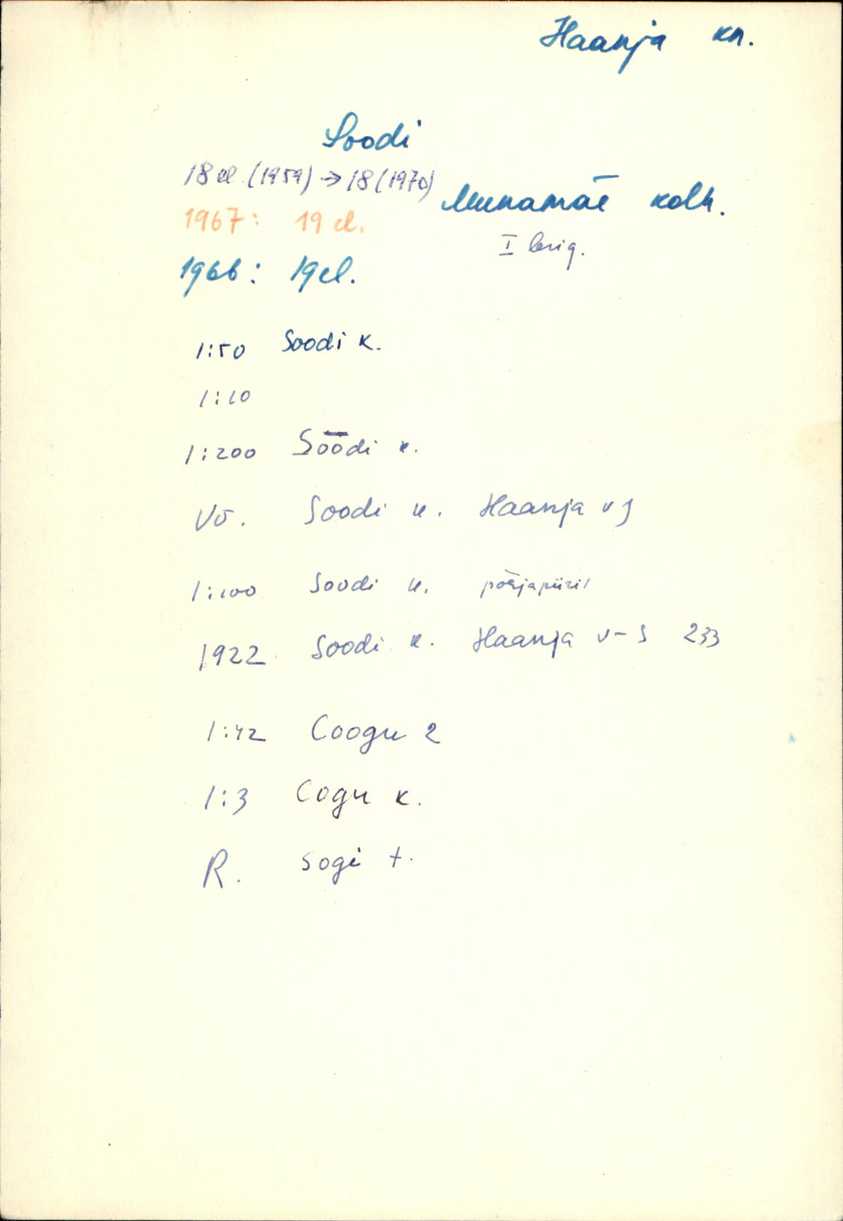 Haanja kn.
Soodi
18 el (1959) → 18 (1970)
Munamäe kolh.
1967: 19 el.
I brig.
1966: 19 el.
1:50 Soodi k.
1:10
1:200 Sōōdi k.
Võ. Soodi k. Haanja v
1:100 Soodi k. põhjapiiril
1922 Soodi k. Haanja v-s 233
1:42 Coogu 2
1:3 Cogu k.
R. Sogi t.